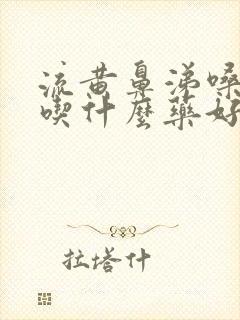 流黄鼻涕嗓
喫什麼藥好
拉塔什